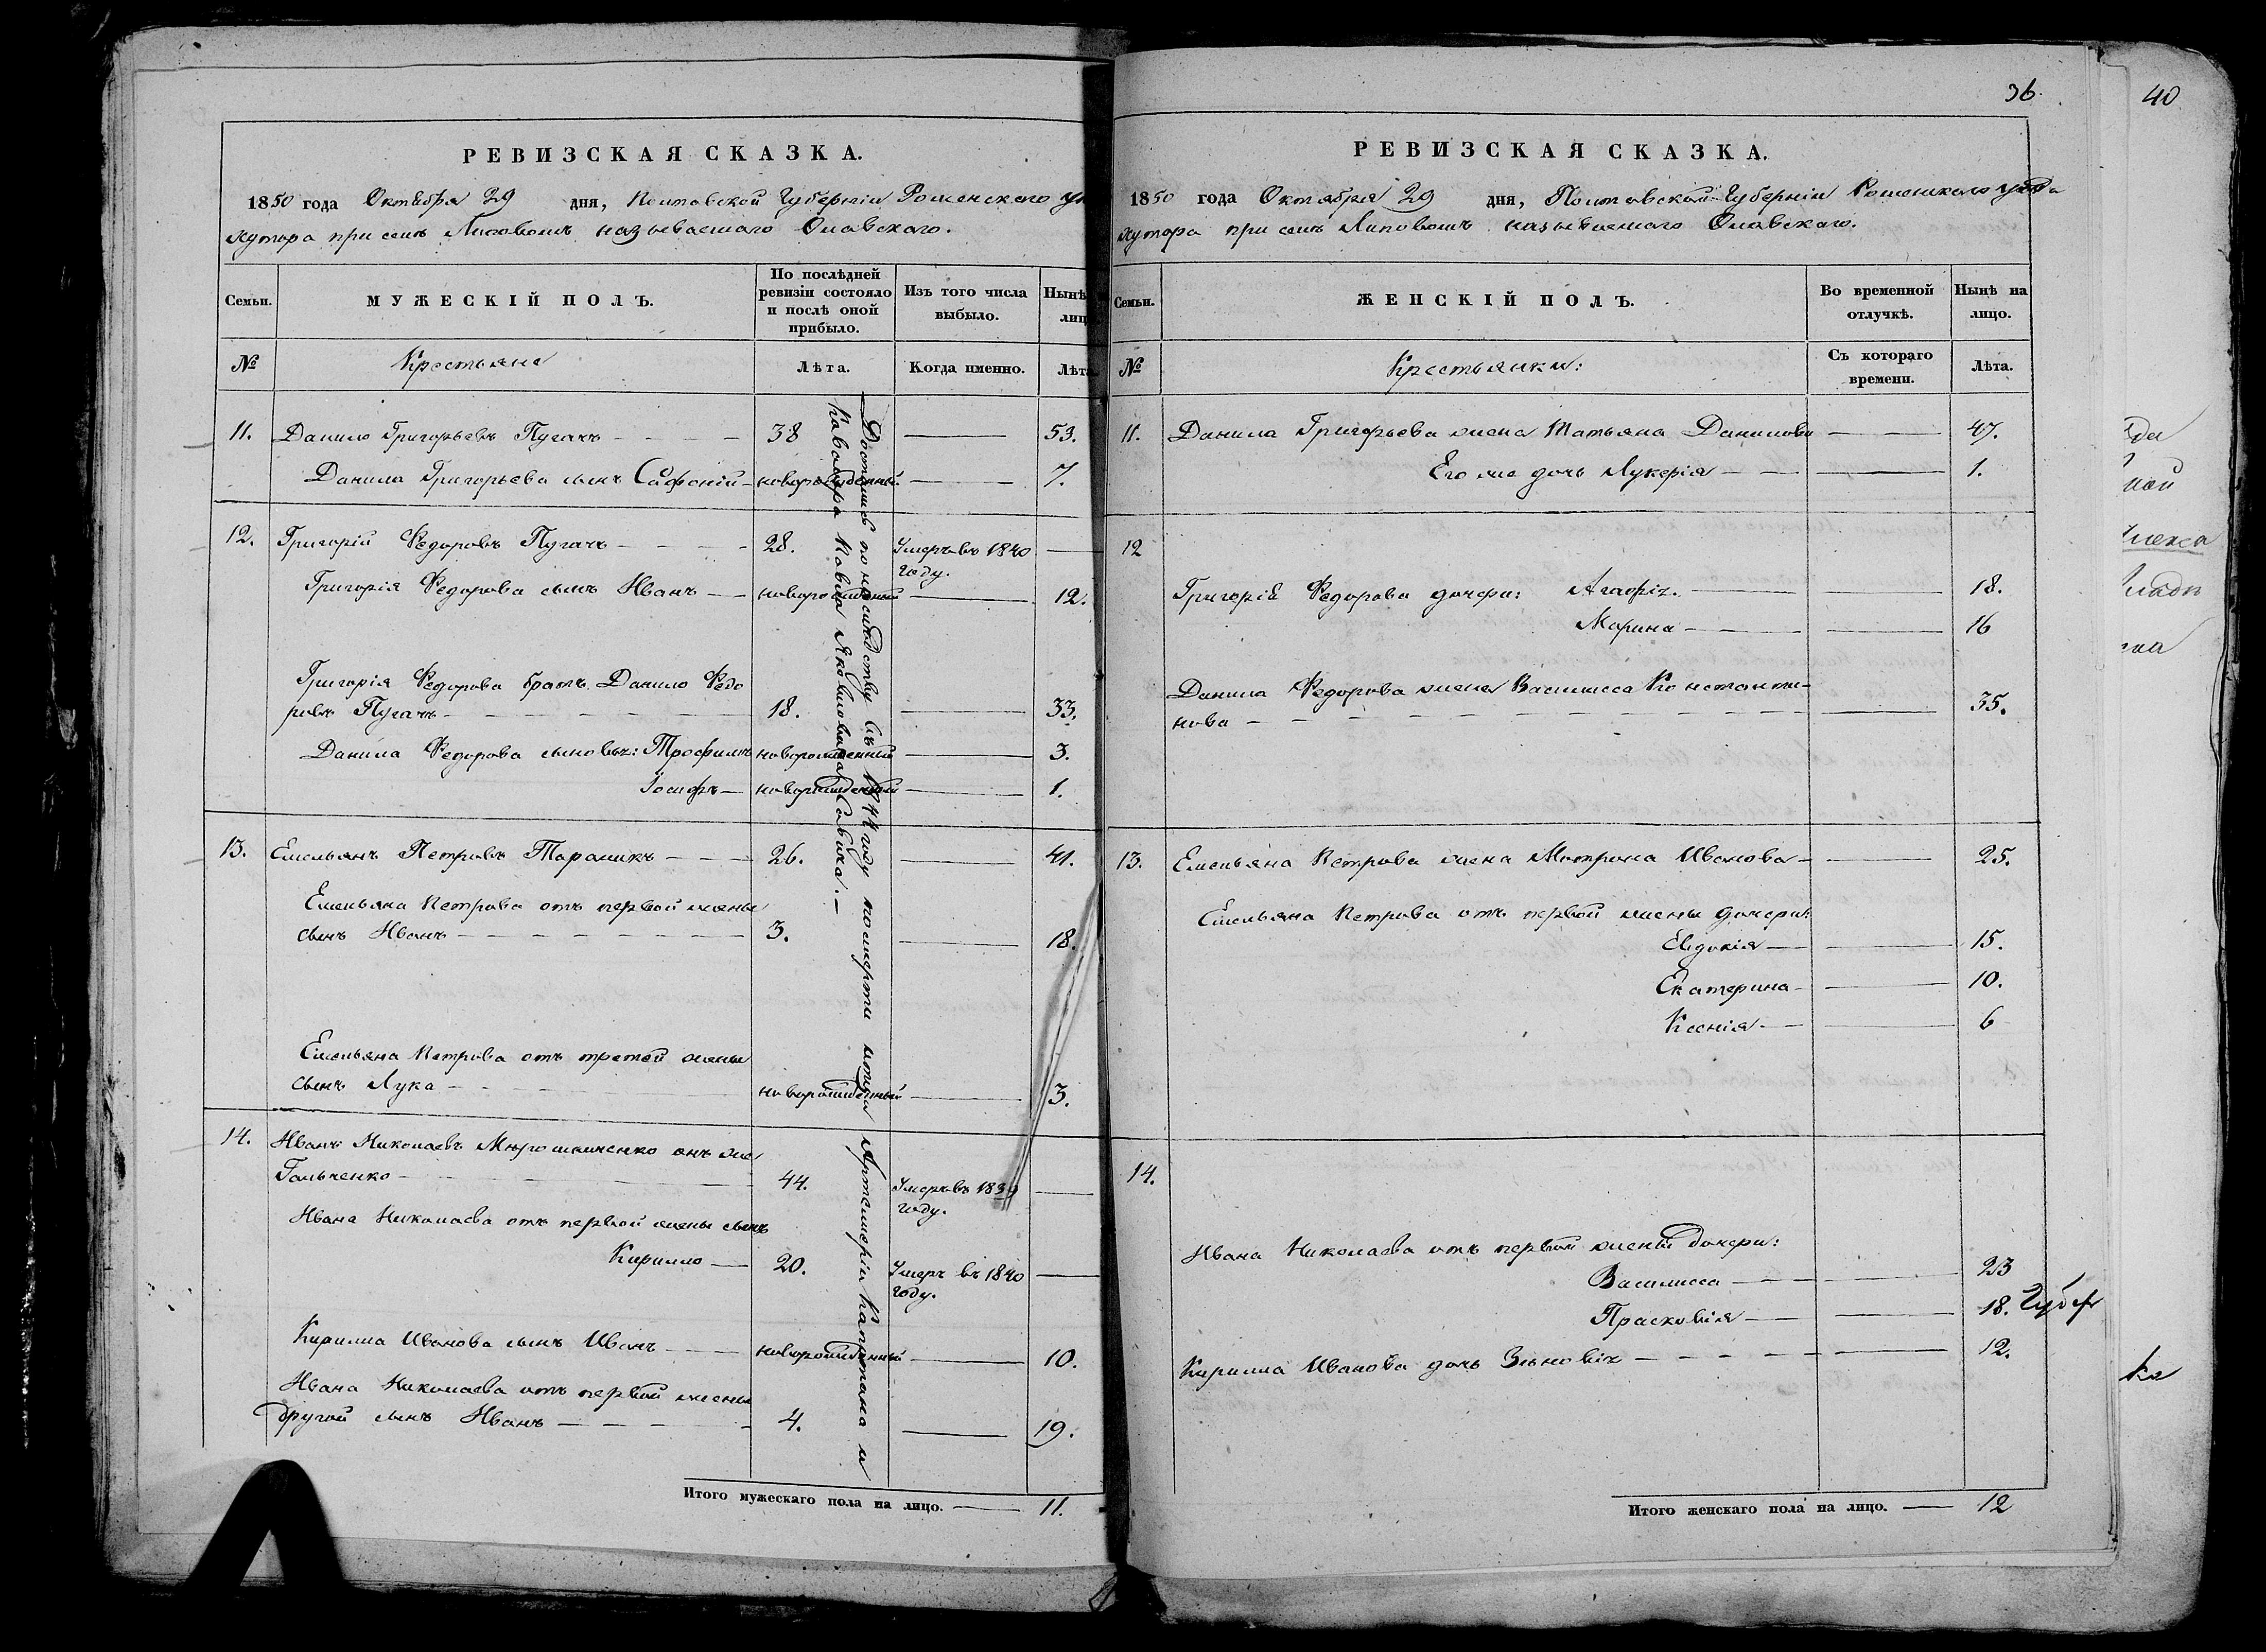 РЕВИЗСКАЯ СКАЗКА.
1850 года Октября 29 дня, Полтавской Губерніи Роменского
хутора при селѣ Липовомъ называемаго
Семьи.
МУЖЕСКІЙ ПОЛЪ.
По послѣдней ревизіи состояло и послѣ оной прибыло.
Изъ того числа выбыло.
Нынѣ
лиц
№
Крестьяне
Лѣта.
Когда именно.
Лѣта
11. Данило Григорьевъ Пугачъ 38 53.
Данила Григорьева сынъ Сафоній новорожденный 7.
12. Григорій Федоровъ Пугачъ 28. Умеръ въ 1840 году.
Григорія Федорова сынъ Иванъ новорожденный 12.
Григорія Федорова братъ Данило Федо
ровъ Пугачъ 18. 33.
Данила Федорова сыновья: Трофимъ новорожденный 3.
Іосифъ новорожденный 1.
13. Емельянъ Петровъ Тараникъ 26. 41.
Емельяна Петрова отъ первой жены
сынъ Иванъ 3. 18.
Емельяна Петрова отъ третей жены
сынъ Лука новорожденный 3.
14. Иванъ Николаевъ Мирошниченко онъ же
Гальченко 44. Умеръ въ 1839 году.
Ивана Николаева отъ первой жены сынъ
Кирилло 20. Умеръ въ 1840 году.
Кирилла Иванова сынъ Иванъ новорожденный 10.
Ивана Николаева отъ первой жены
другой сынъ Иванъ 4. 19.
Итого мужескаго пола на лицо. 11.
Достались по наслѣдству въ 1844 году по смерти Артемерія Капитана и
Кавалера Павла
36.
РЕВИЗСКАЯ СКАЗКА.
1850 года Октября 29 дня, Полтавской Губерніи Роменского уѣзда
хутора при селѣ Липовомъ называемаго
Семьи.
ЖЕНСКІЙ ПОЛЪ.
Во временной отлучкѣ.
Нынѣ на лицо.
№
Крестьянки:
Съ котораго времени.
Лѣта.
11. Данила Григорьева жена Татьяна Данилова 47.
Его же дочь Лукерія 1.
12
Григорія Федорова дочери: Агафія. 18.
Марина 16
Данила Федорова жена Василисса Константи-
нова 35.
13. Емельяна Петрова жена Матрона Иванова 25.
Емельяна Петрова отъ первой жены дочери:
Евдокія 15.
Екатерина 10.
Ксенія 6
14.
Ивана Николаева отъ первой жены дочери:
Василисса 23
Прасковія 18.
Кирилла Иванова дочь Зѣновія 12.
Итого женскаго пола на лицо. 12
40